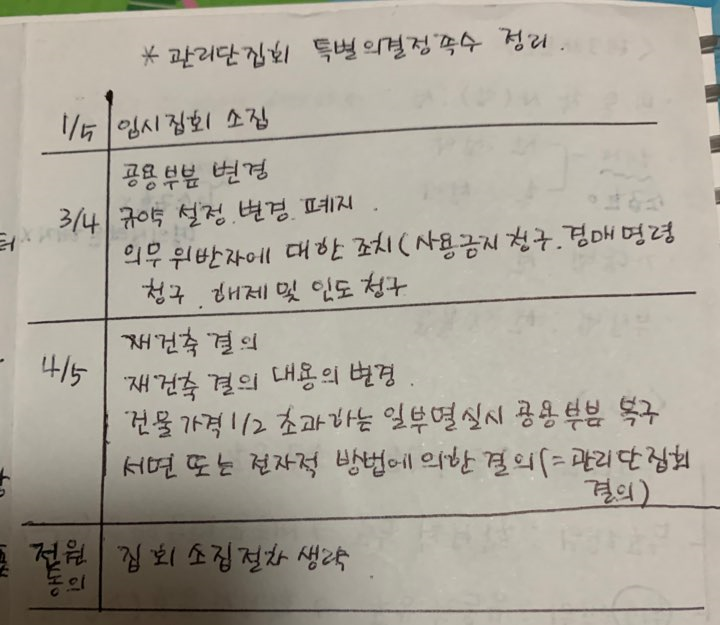 * 관리단집회 특별의결정족수 정리.
1/5 임시집회 소집
공용부분 변경
3/4 규약 설정.변경.폐지.
의무위반자에 대한 조치(사용금지청구.경매명령
청구.해제 및 인도청구
재건축 결의
4/5 재건축 결의 내용의 변경.
건물가격 1/2 초과하는 일부멸실시 공용부분 복구
서면 또는 전자적 방법에 의한 결의(=관리단집회
결의)
전원 집회 소집절차 생략
동의